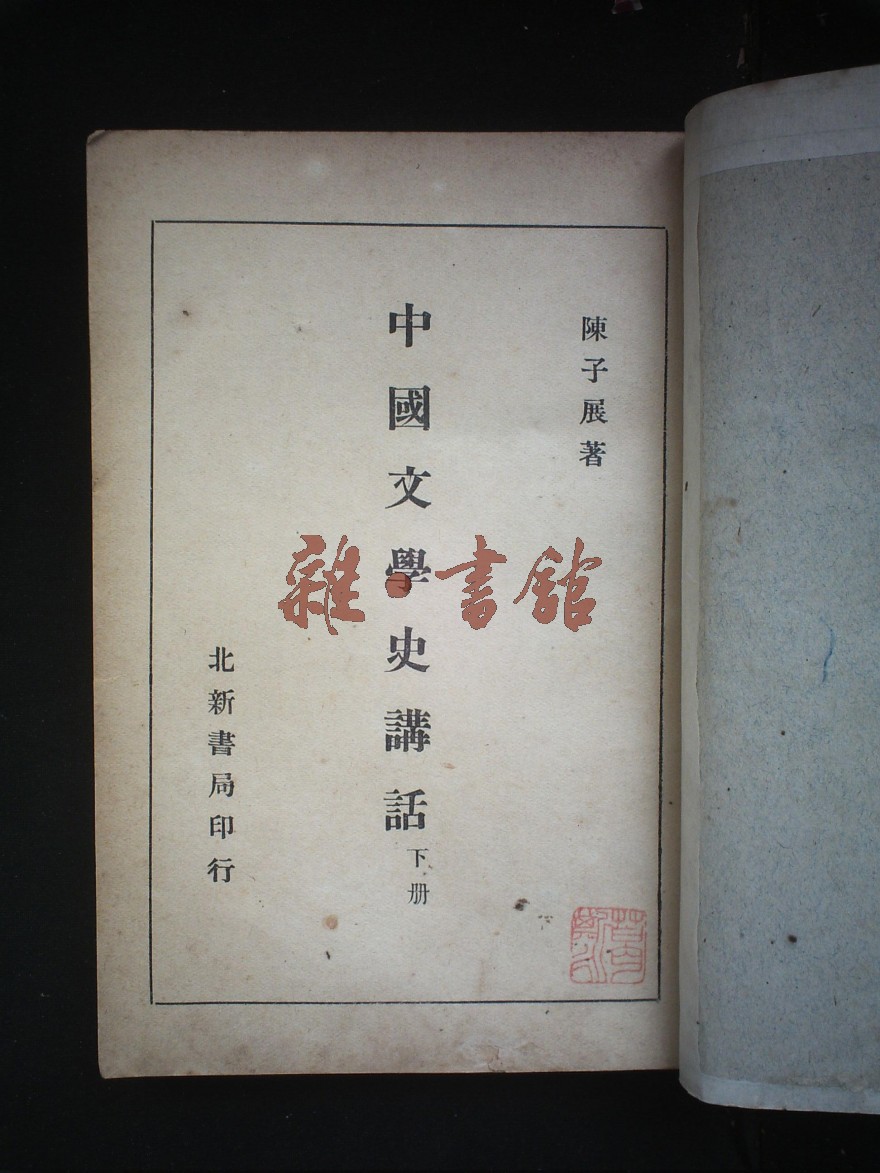 陳子展著
中國文學史講話
下册
北新書局印行
雜·書館